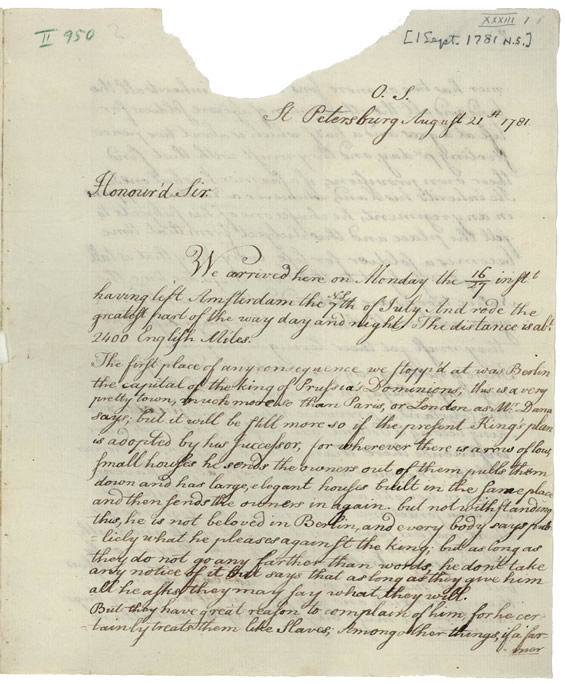 XXXIII 1
II 950
[1 Sept. 1781 N.S.]
O. S.
St Petersburg August 21st 1781.
Honour'd Sir.
We arrived here on Monday the 16/27 instt
having left Amsterdam the 7th N.S. of July And rode the
greatest part of the way day and night. The distance is abt.
2400 English Miles.
The first place of any consequence we stopp'd at was Berlin
the capital of the king of Prussia's Dominions; this is a very
pretty town, much more so than Paris, or London as Mr. Dana
says; but it will be still more so if the present King's plan
is adopted by his successor, for wherever there is a row of low,
small houses he sends the owners out of them pulls them
down and has large, elegant houses built in the same place
and then sends the owners in again. but notwithstanding
this, he is not beloved in Berlin, and every body says pub-
-licly what he pleases against the king; but as long as
they do not go any farther than words, he dont take
any notice of it but says that as long as they give him
all he asks they may say what they will.
But they have great reason to complain of him for he cer-
-tainly treats them like Slaves; Among other things, if a far-
-mer